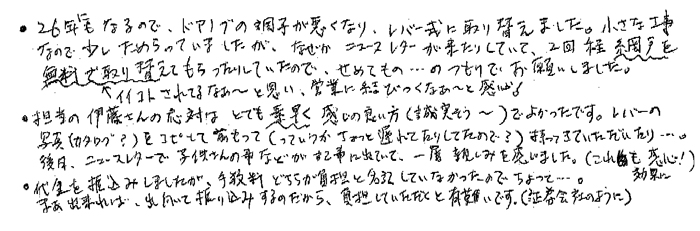 ・26年にもなるので、ドアノブの調子が悪くなり、レバー式に取り替えました。小さな工事
なので少しためらっていましたが、なぜかニュースレターが来たりしていて、2回程 網戸を
無料で取り替えてもらったりしていたので、せめてもの…のつもりでお願いしました。
イイコトされてるなあ〜と思い、営業に結びつくなあ〜と感心!
・担当の伊藤さんの応対はとても素早く感じの良い方(誠実そう〜)でよかったです。レバーの
写真(カタログ?)をコピーして前もって(っていうかちょっと遅れてたりしてたので?)持ってきていただいたり…。
後日、ニュースレターで子供さんの事などが記事に出ていて、一層親しみを感じました。(これも感心!)
効果に
・代金を振込みしましたが、手数料どちらが負担と名記していなかったのでちょっと…。
出来れば、出向いて振り込みするのだから、負担していただくと有難いです。(証券会社のように)